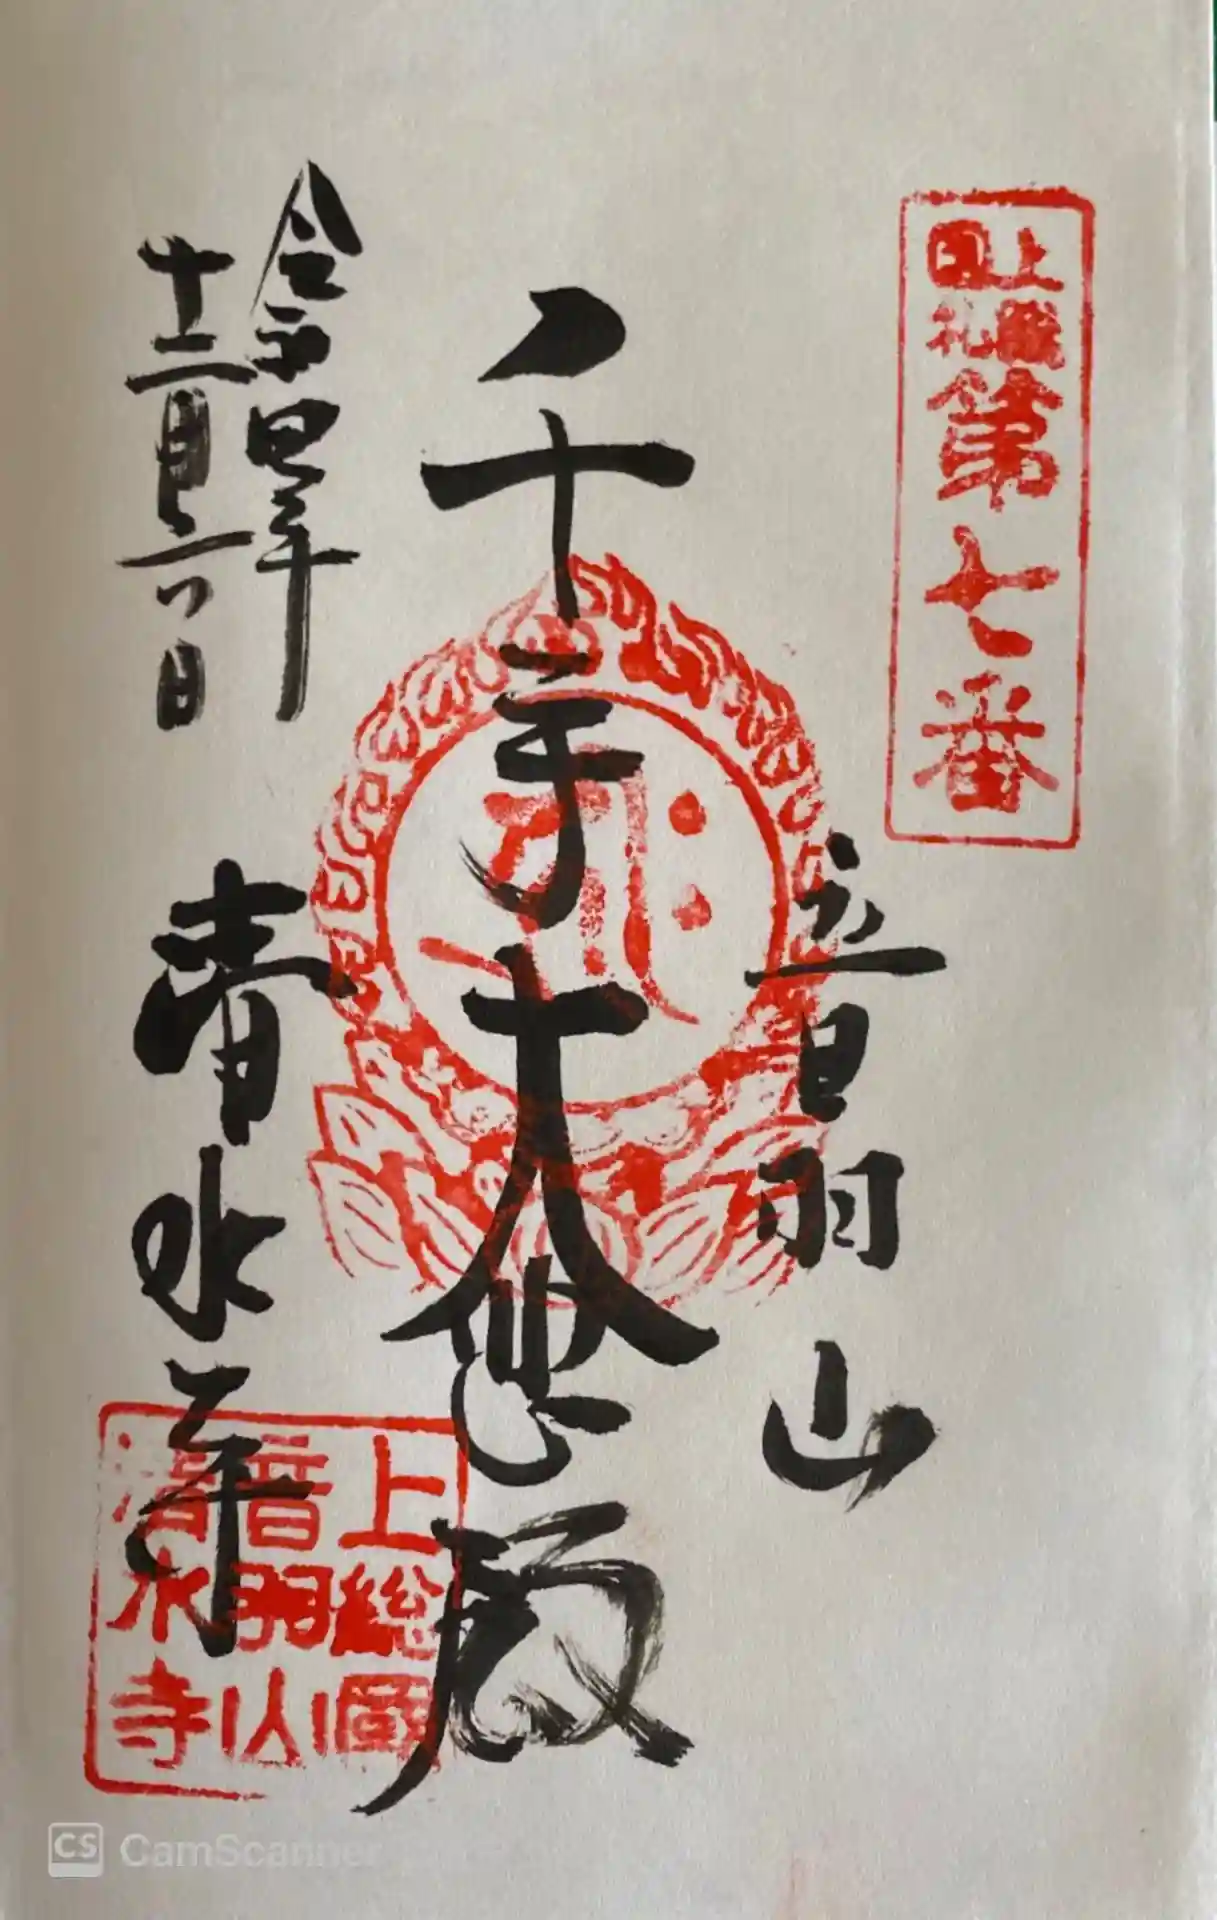 上総
国札
第七番
音羽山
千手大悲殿
令和四年
十二月六日
清水寺
上総國
音羽山
清水寺
CamScanner